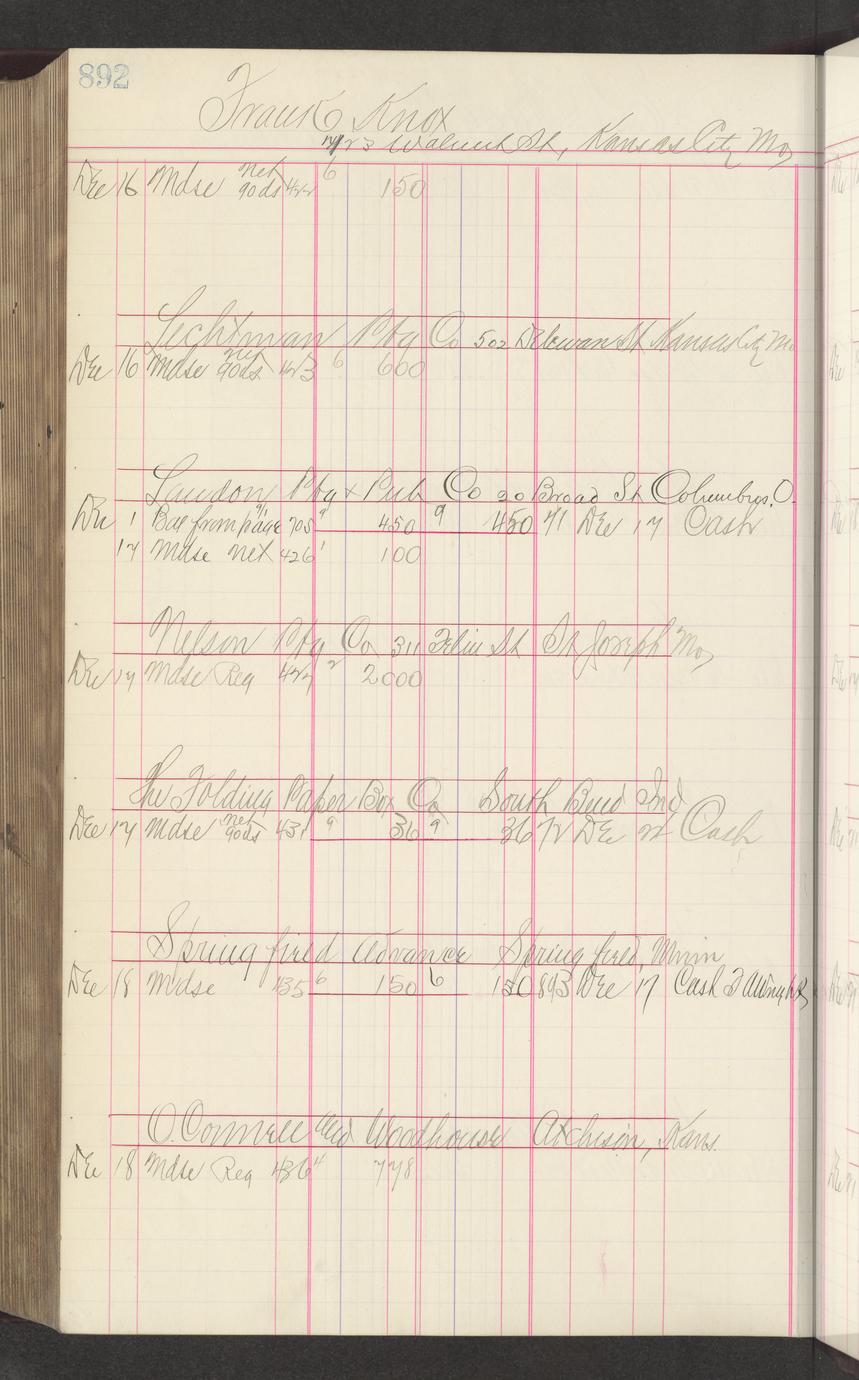 892
Frank Knox
1423 Walnut St, Kansas City Mo
Dec 16 Mdse net gods 422 6 150
Lechtman Ptg Co 502 Delewan St Kansas City Mo
Dec 16 Mdse net gods 423 6 600
Landon Ptg & Pub Co 20 Broad St Columbus, O.
Dec 1 Bal from page 705 9 450 9 450 71 Dec 17 Cash
17 Mdse net 426 1 100
Nelson Ptg Co 311 Felix St St Joseph Mo
Dec 17 Mdse Reg 427 2 2000
The Folding Paper Box Co South Bend Ind
Dec 17 Mdse net gods 431 9 36 9 36 72 Dec 22 Cash
Springfield Advance Springfield, Minn
Dec 18 Mdse 435 6 150 6 150 893 Dec 17 Cash
O. Connell and Woodhouse Atchison, Kans.
Dec 18 Mdse Reg 436 4 778